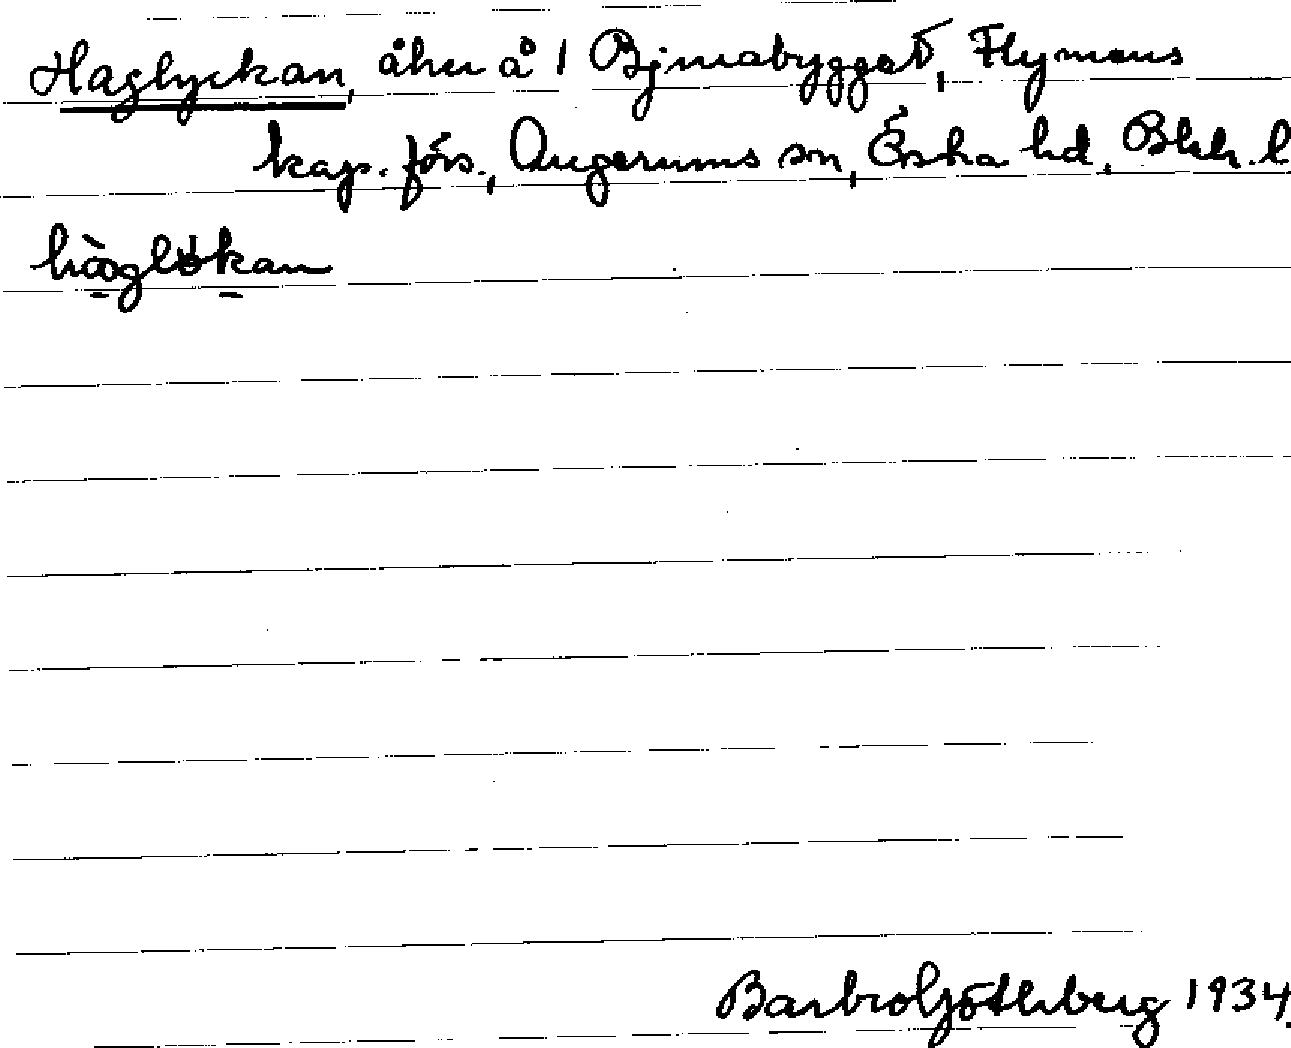 Haglyckan, åker å 1 Björnabygget, Flymens
kap. förs., Augerums sn, Östra hd, Blek. l
hàglykan
Barbro Götlberg 1934.